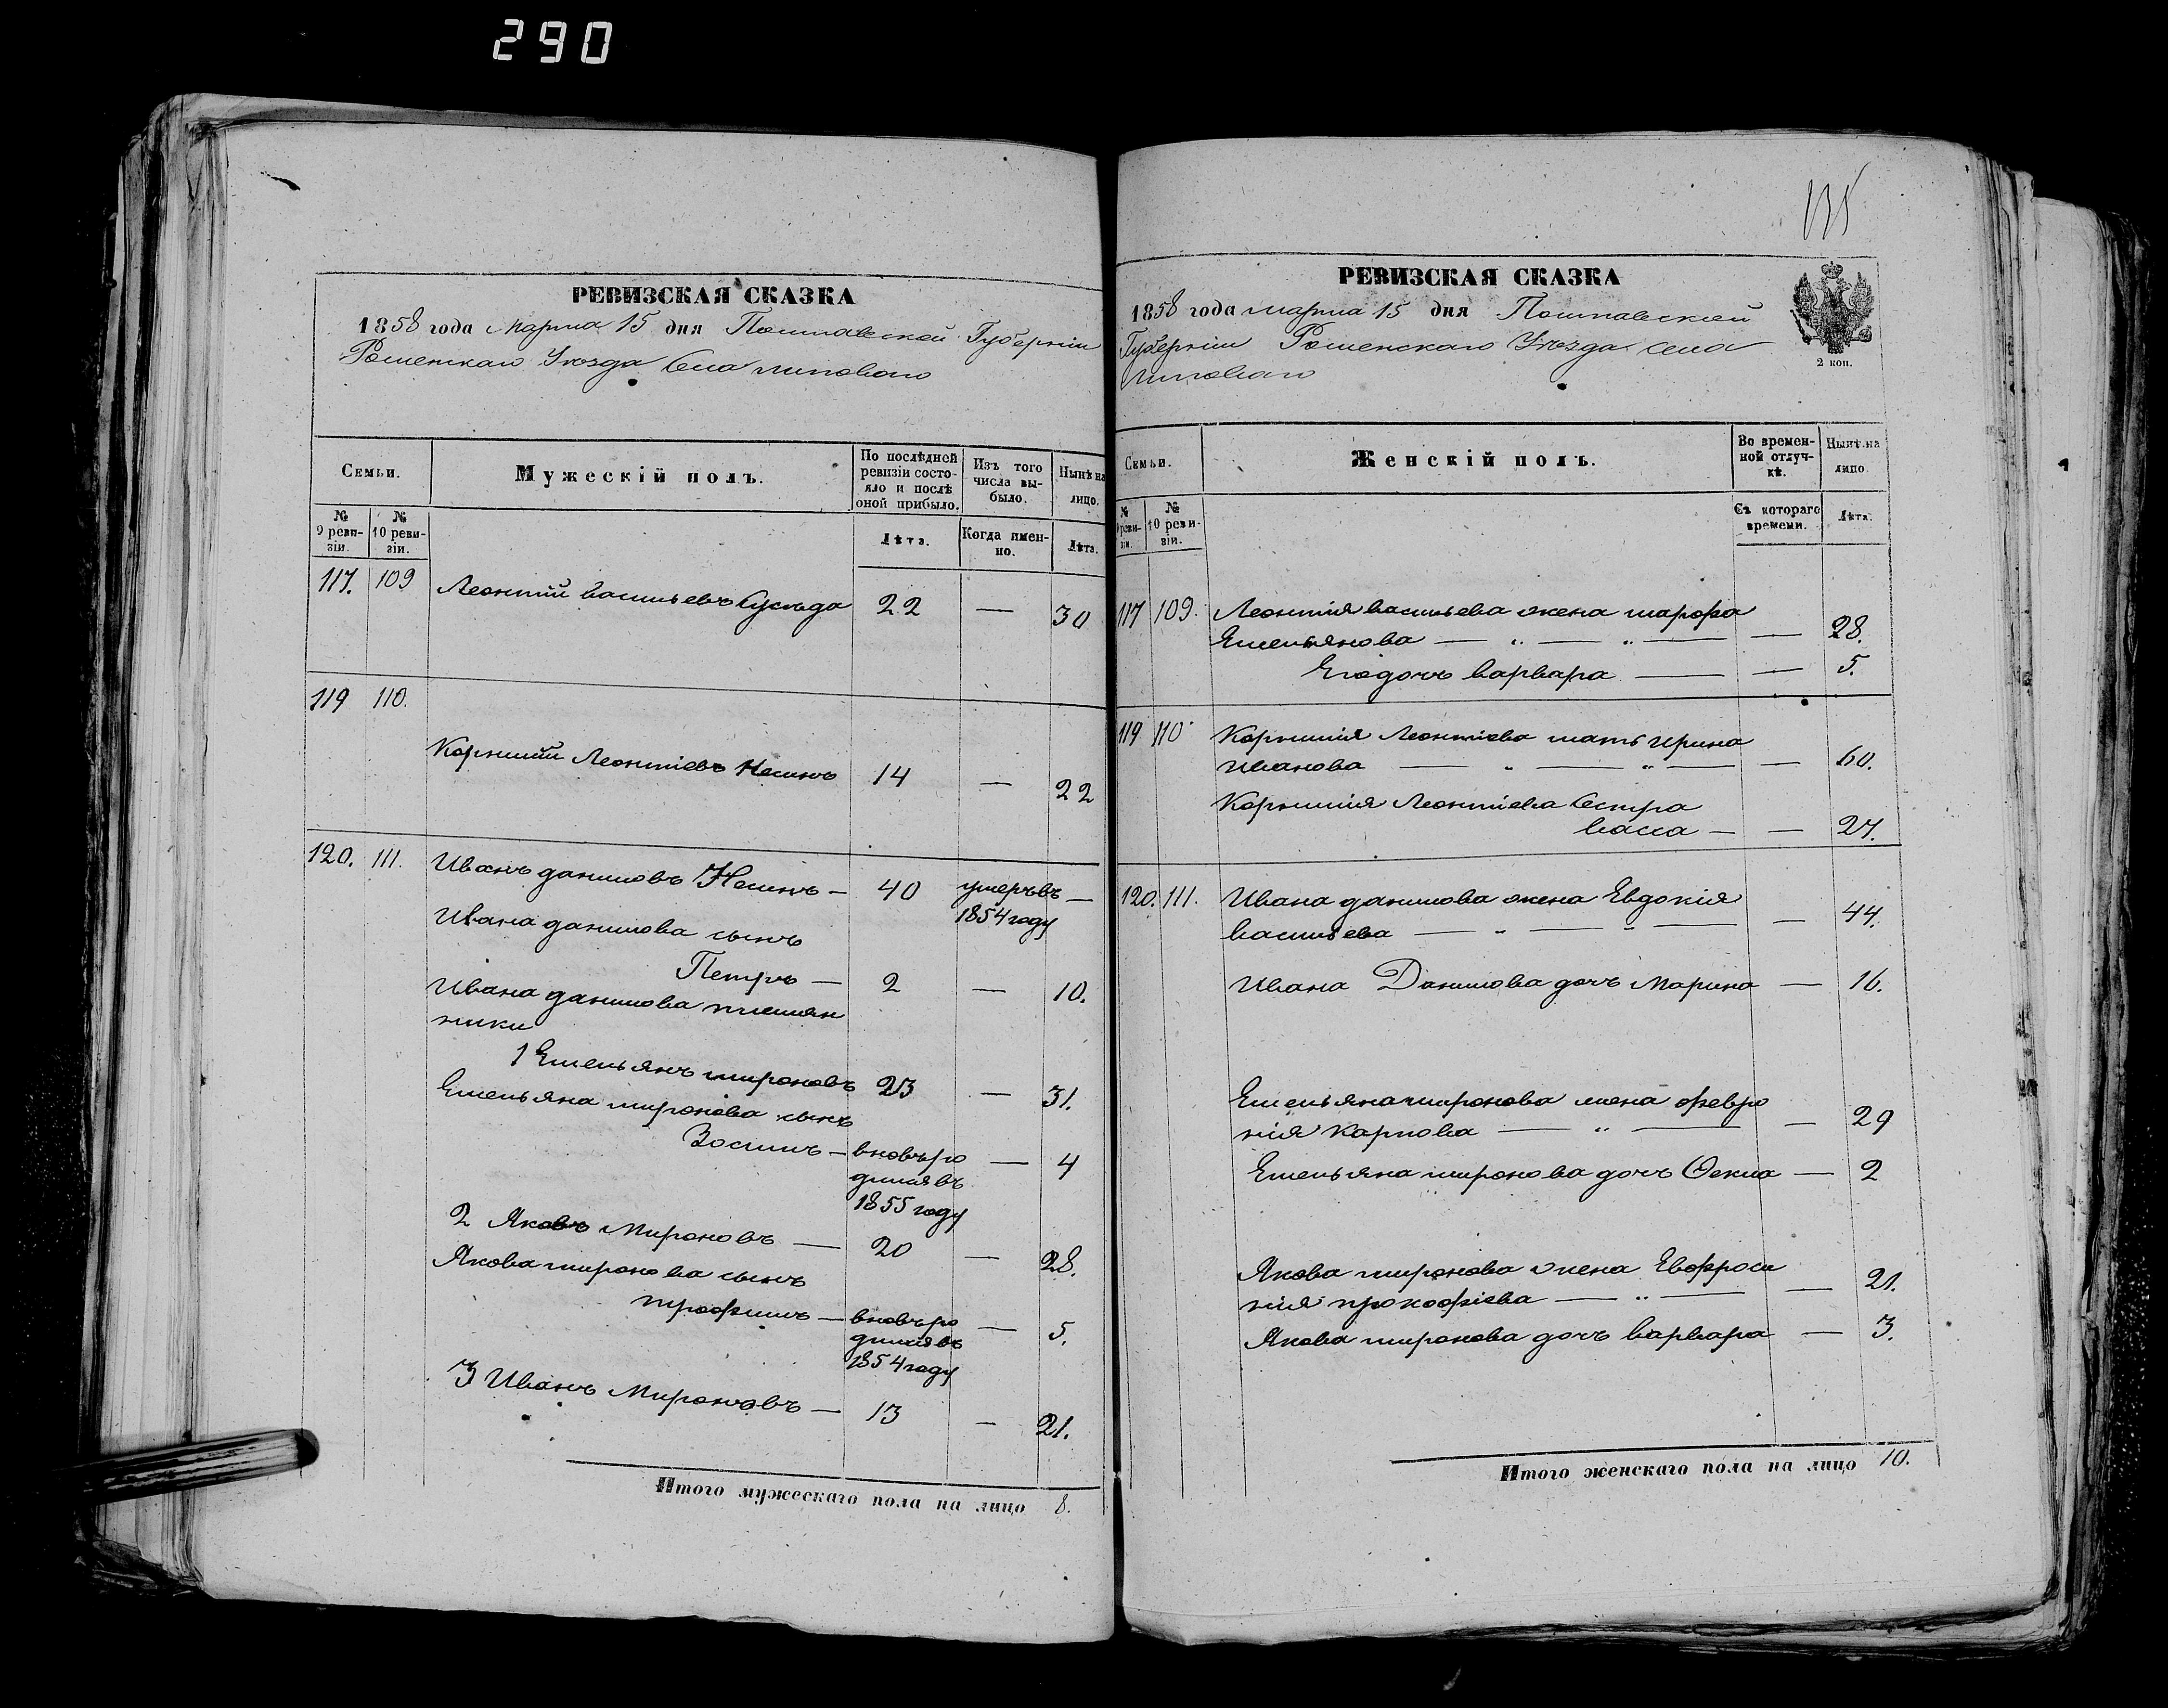 290
РЕВИЗСКАЯ СКАЗКА
1858 года марта 15 дня Полтавской Губерніи
Роменскаго Уѣзда Села Липоваго
Семьи.
Мужескій полъ.
По послѣдней ревизіи состояло и послѣ оной прибыло.
Изъ того числа выбыло.
Нынѣ на лицо.
№ 9 ревизіи.
№ 10 ревизіи.
Лѣта.
Когда именно.
Лѣта.
117. 109 Леонтій васильевъ Сусѣда 22 — 30
119 110.
Корнилій Леонтіевъ Нешнъ 14 — 22
120. 111. Иванъ даниловъ Нешнъ — 40 умеръ въ —
1854 году
Ивана данилова сынъ
Петръ — 2 — 10.
Ивана данилова племян
ники
1 Емельянъ мироновъ 23 — 31.
Емельяна миронова сынъ
Зосимъ — вновь ро — 4
дился въ
1855 году
2 Яковъ Мироновъ — 20 — 28.
Якова миронова сынъ
трофимъ — вновь ро — 5.
дился въ
1854 году
3 Иванъ Мироновъ — 13 — 21.
Итого мужескаго пола на лицо 8.
135
РЕВИЗСКАЯ СКАЗКА
1858 года марта 15 дня Полтавской
Губерніи Роменскаго Уѣзда села
Липоваго
2 коп.
Семьи.
Женскій полъ.
Во временной отлучкѣ.
Нынѣ на лицо.
№ 9 ревизіи.
№ 10 ревизіи.
Съ котораго времени.
Лѣта.
117 109. Леонтія васильева жена марфа
Емельянова — „ — „ — — 28.
Его дочь варвара — — 5.
119 110 Корнилія Леонтіева мать ирина
иванова — „ — „ — — 60.
Корнилія Леонтіева Сестра
васса — — 27.
120. 111. Ивана данилова жена Евдокія
васильева — „ — „ — — 44.
Ивана Данилова дочь Марина — 16.
Емельяна миронова жена февро
нія карпова — „ — — 29
Емельяна миронова дочь Ѳекла — 2
Якова миронова жена Евфроси
нія прокофіева — „ — — 21.
Якова миронова дочь варвара — 3.
Итого женскаго пола на лицо 10.